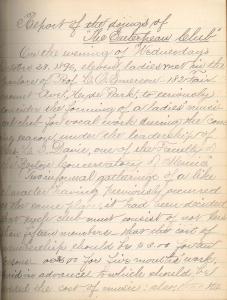 Report of the doings of
"The Euterpean Club"
On the evening of Wednesday
28, 1896, eleven ladies met in the
parlors of Prof. L. A. Emerson 183 Fair-
mount Ave., Hyde Park, to seriously
consider the forming of a ladies musi-
cal club for vocal work during the com-
ing season, under the leadership of
one of the Faculty of
"Boston Conservatory of Music"
Two informal gatherings of a like
character having previously occurred
at the same place, it had been decided
that such club must consist of not less
than fifteen members that the cost of
membership should be for the
season or for five months work,
paid in advance to which should be
the cost of music